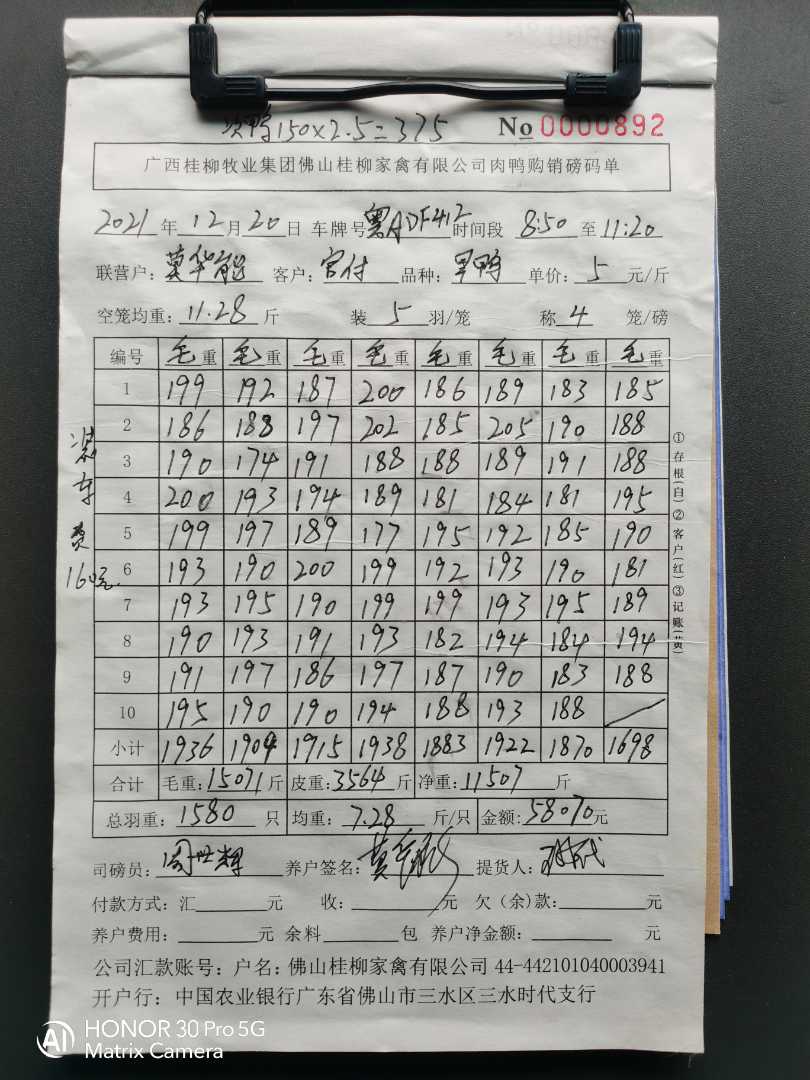 次鸭150×2.5=375 No 0000892
广西桂柳牧业集团佛山桂柳家禽有限公司肉鸭购销磅码单
2021年12月20日 车牌号粤ADF412时间段 8:50 至11:20
联营户:莫华能 客户:官付 品种:旱鸭 单价:5元/斤
空笼均重:11.28斤 装5羽/笼 称4笼/磅
编号 毛重 毛重 毛重 毛重 毛重 毛重 毛重 毛重
1 199 192 187 200 186 189 183 185
2 186 188 197 202 185 205 190 188
3 190 174 191 188 188 189 191 188
4 200 193 194 189 181 184 181 195
5 199 197 189 177 195 192 185 190
6 193 190 200 199 192 193 190 181
7 193 195 190 199 199 193 195 189
8 190 193 191 193 182 194 184 194
9 191 197 186 197 187 190 183 188
10 195 190 190 194 188 193 188
小计 1936 1909 1915 1938 1883 1922 1870 1698
合计 毛重:15071斤 皮重:3564斤 净重:11507斤
总羽重:1580只 均重:7.28斤/只 金额:58070元
装车费160元.
①存根(白)②客户(红)③记账(黄)
司磅员:周世辉 养户签名:莫华能 提货人:
付款方式:汇 元 收: 元 欠(余)款: 元
养户费用: 元 余料 包 养户净金额: 元
公司汇款账号:户名:佛山桂柳家禽有限公司 44-442101040003941
开户行:中国农业银行广东省佛山市三水区三水时代支行
AI HONOR 30 Pro 5G
Matrix Camera